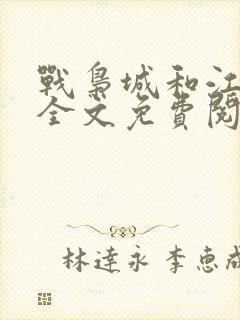 戰梟城和江
全文免費閱
林達永 李惠成